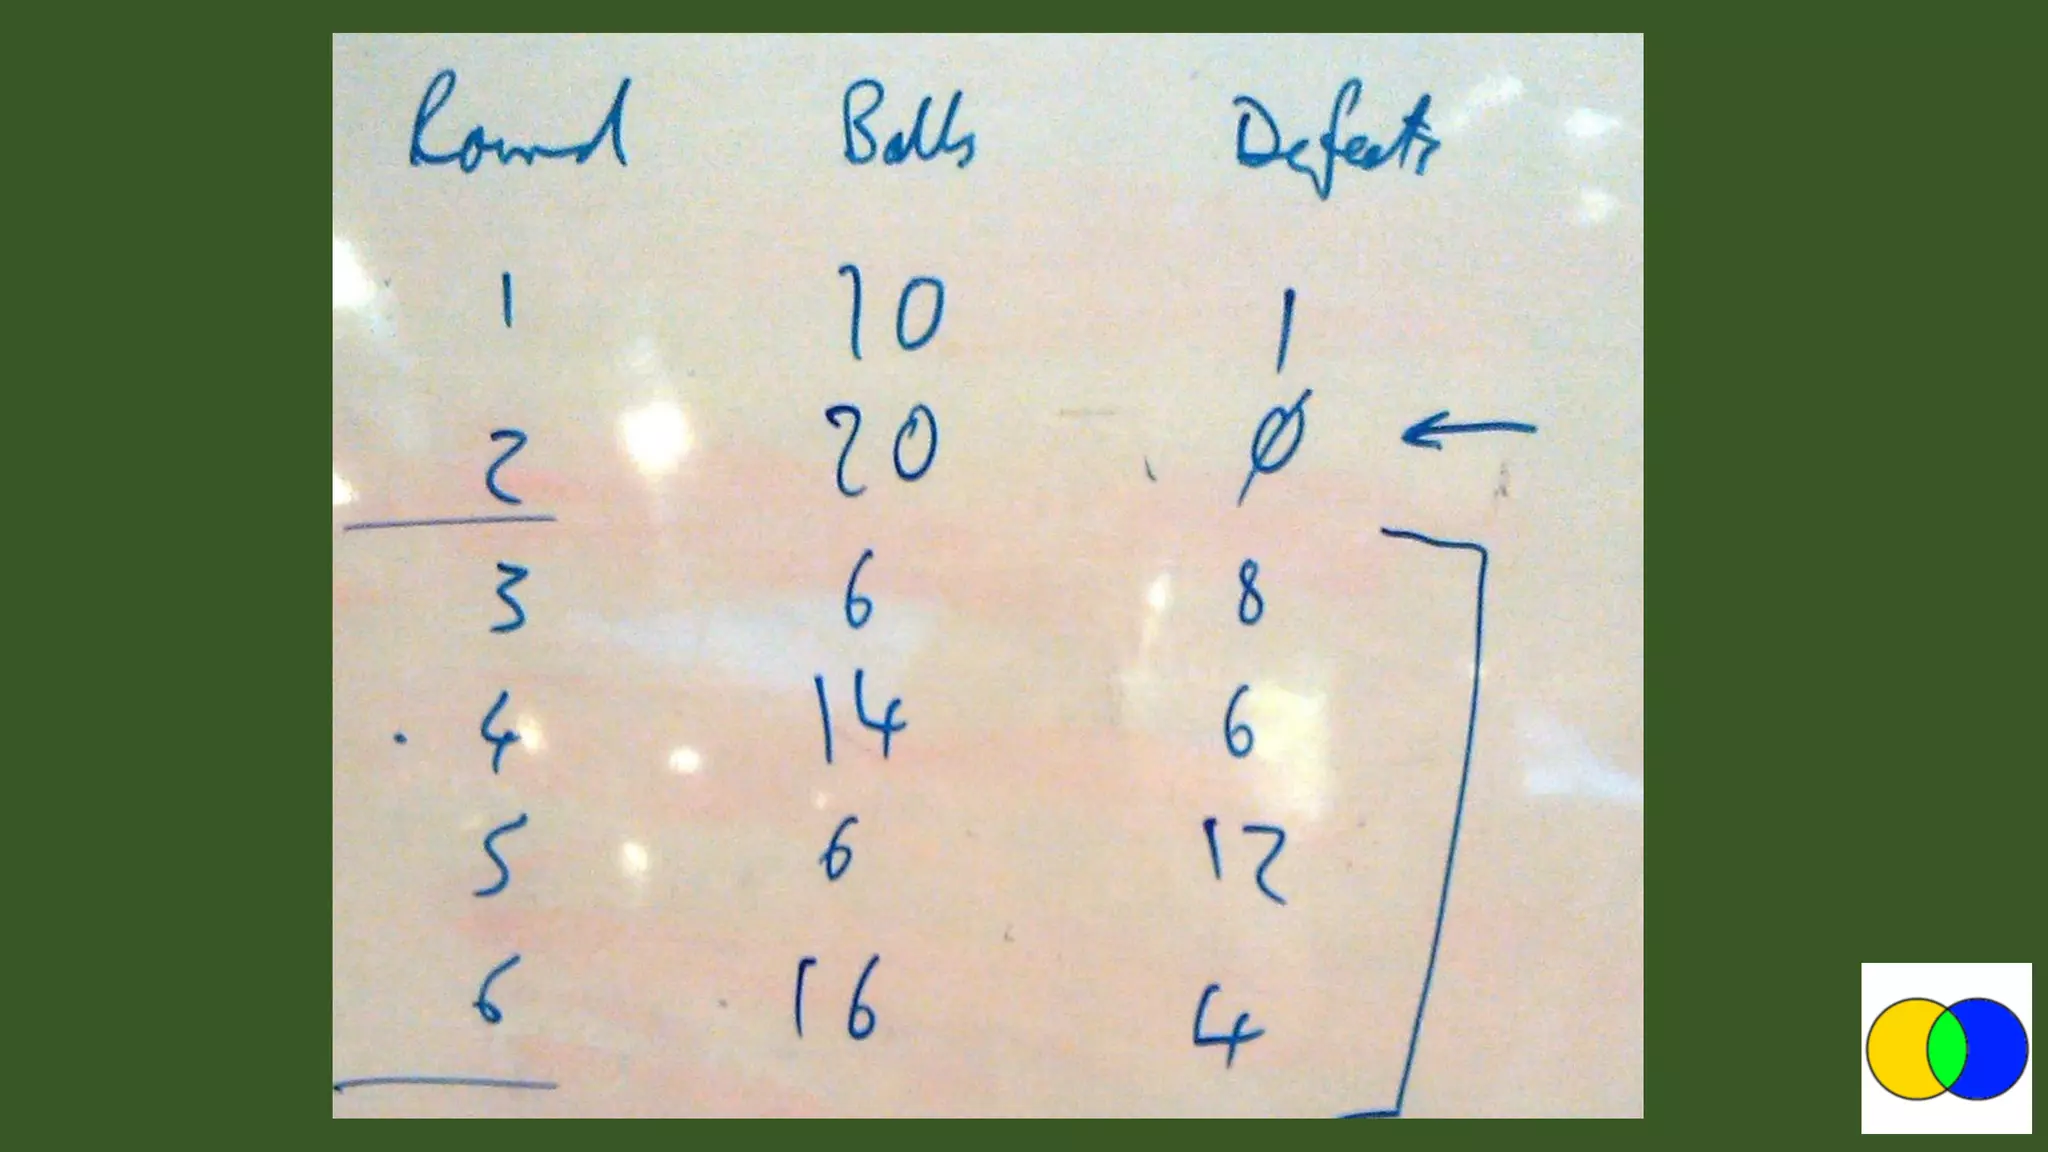 Round Balls Defects
1 10 1
2 20 Ø
3 6 8
4 14 6
5 6 12
6 16 4